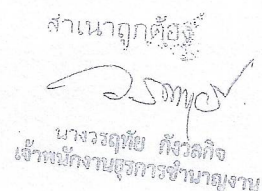 สำเนาถูกต้อง
นางวรฤทัย กังวลกิจ
เจ้าพนักงานธุรการชำนาญงาน